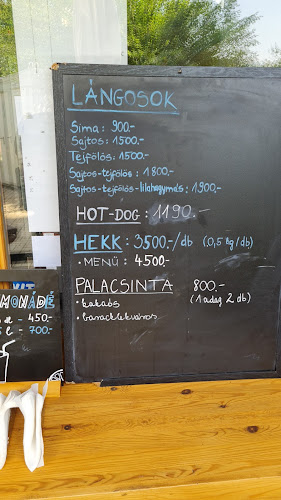 LÁNGOSOK
Sima: 900.-
Sajtos: 1500.-
Tejfölös: 1500.-
Sajtos-tejfölös: 1800.-
Sajtos-tejfölös-lilahagymás: 1900.-
HOT-DOG: 1190.-
HEKK: 3500.-/db (0,5 kg/db)
- MENÜ: 4500.-
PALACSINTA 800.-
• kakaós (1 adag 2 db)
• baracklekváros
MONÁDÉ
450.-
700.-